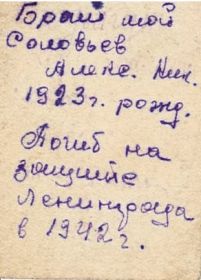 Брат мой
Соловьев
Алекс. Ник.
1923 г. рожд.
Погиб на
защите
Ленинграда
в 1942 г.